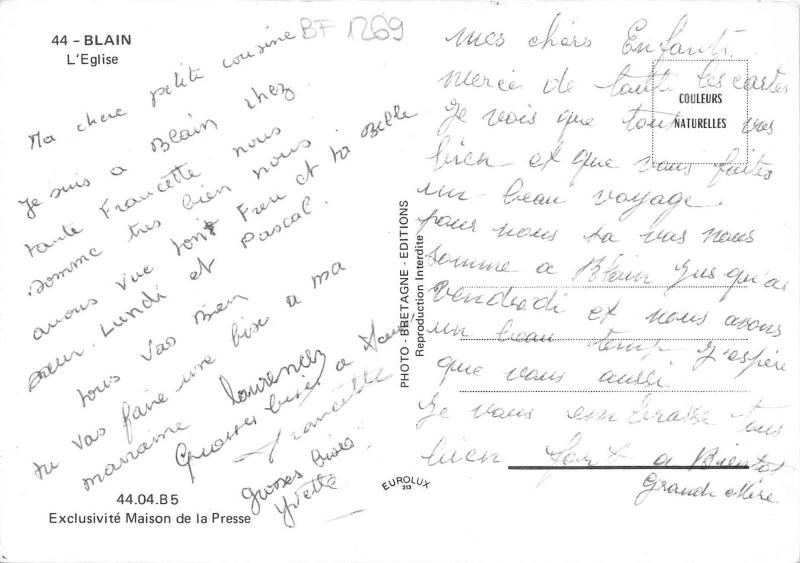 44 - BLAIN
L'Eglise
BF 1269
Ma chere petite cousine
Je suis a Blain chez
tante Francette nous
somme tres bien nous
avons vue ton Frere et ta Belle
sœur. Lundi et Pascal.
tous vas Bien
tu vas faire une bise a ma
marraine
Laurence
Grosses bises a
Francette
grosses bises
Yvette
44.04.B5
Exclusivité Maison de la Presse
PHOTO - BRETAGNE - EDITIONS
Reproduction Interdite
EUROLUX
213
COULEURS
NATURELLES
mes chèrs Enfants.
mercie de toute les cartes
Je vois que tout vas
bien et que vous faites
un beau voyage.
pour nous sa vas nous
somme a Blain jusqu'au
Vendredi et nous avons
un beau temp j'espère
que vous aussi
Je vous embrasse tous
bien fort a Bientot
Grand Mère.